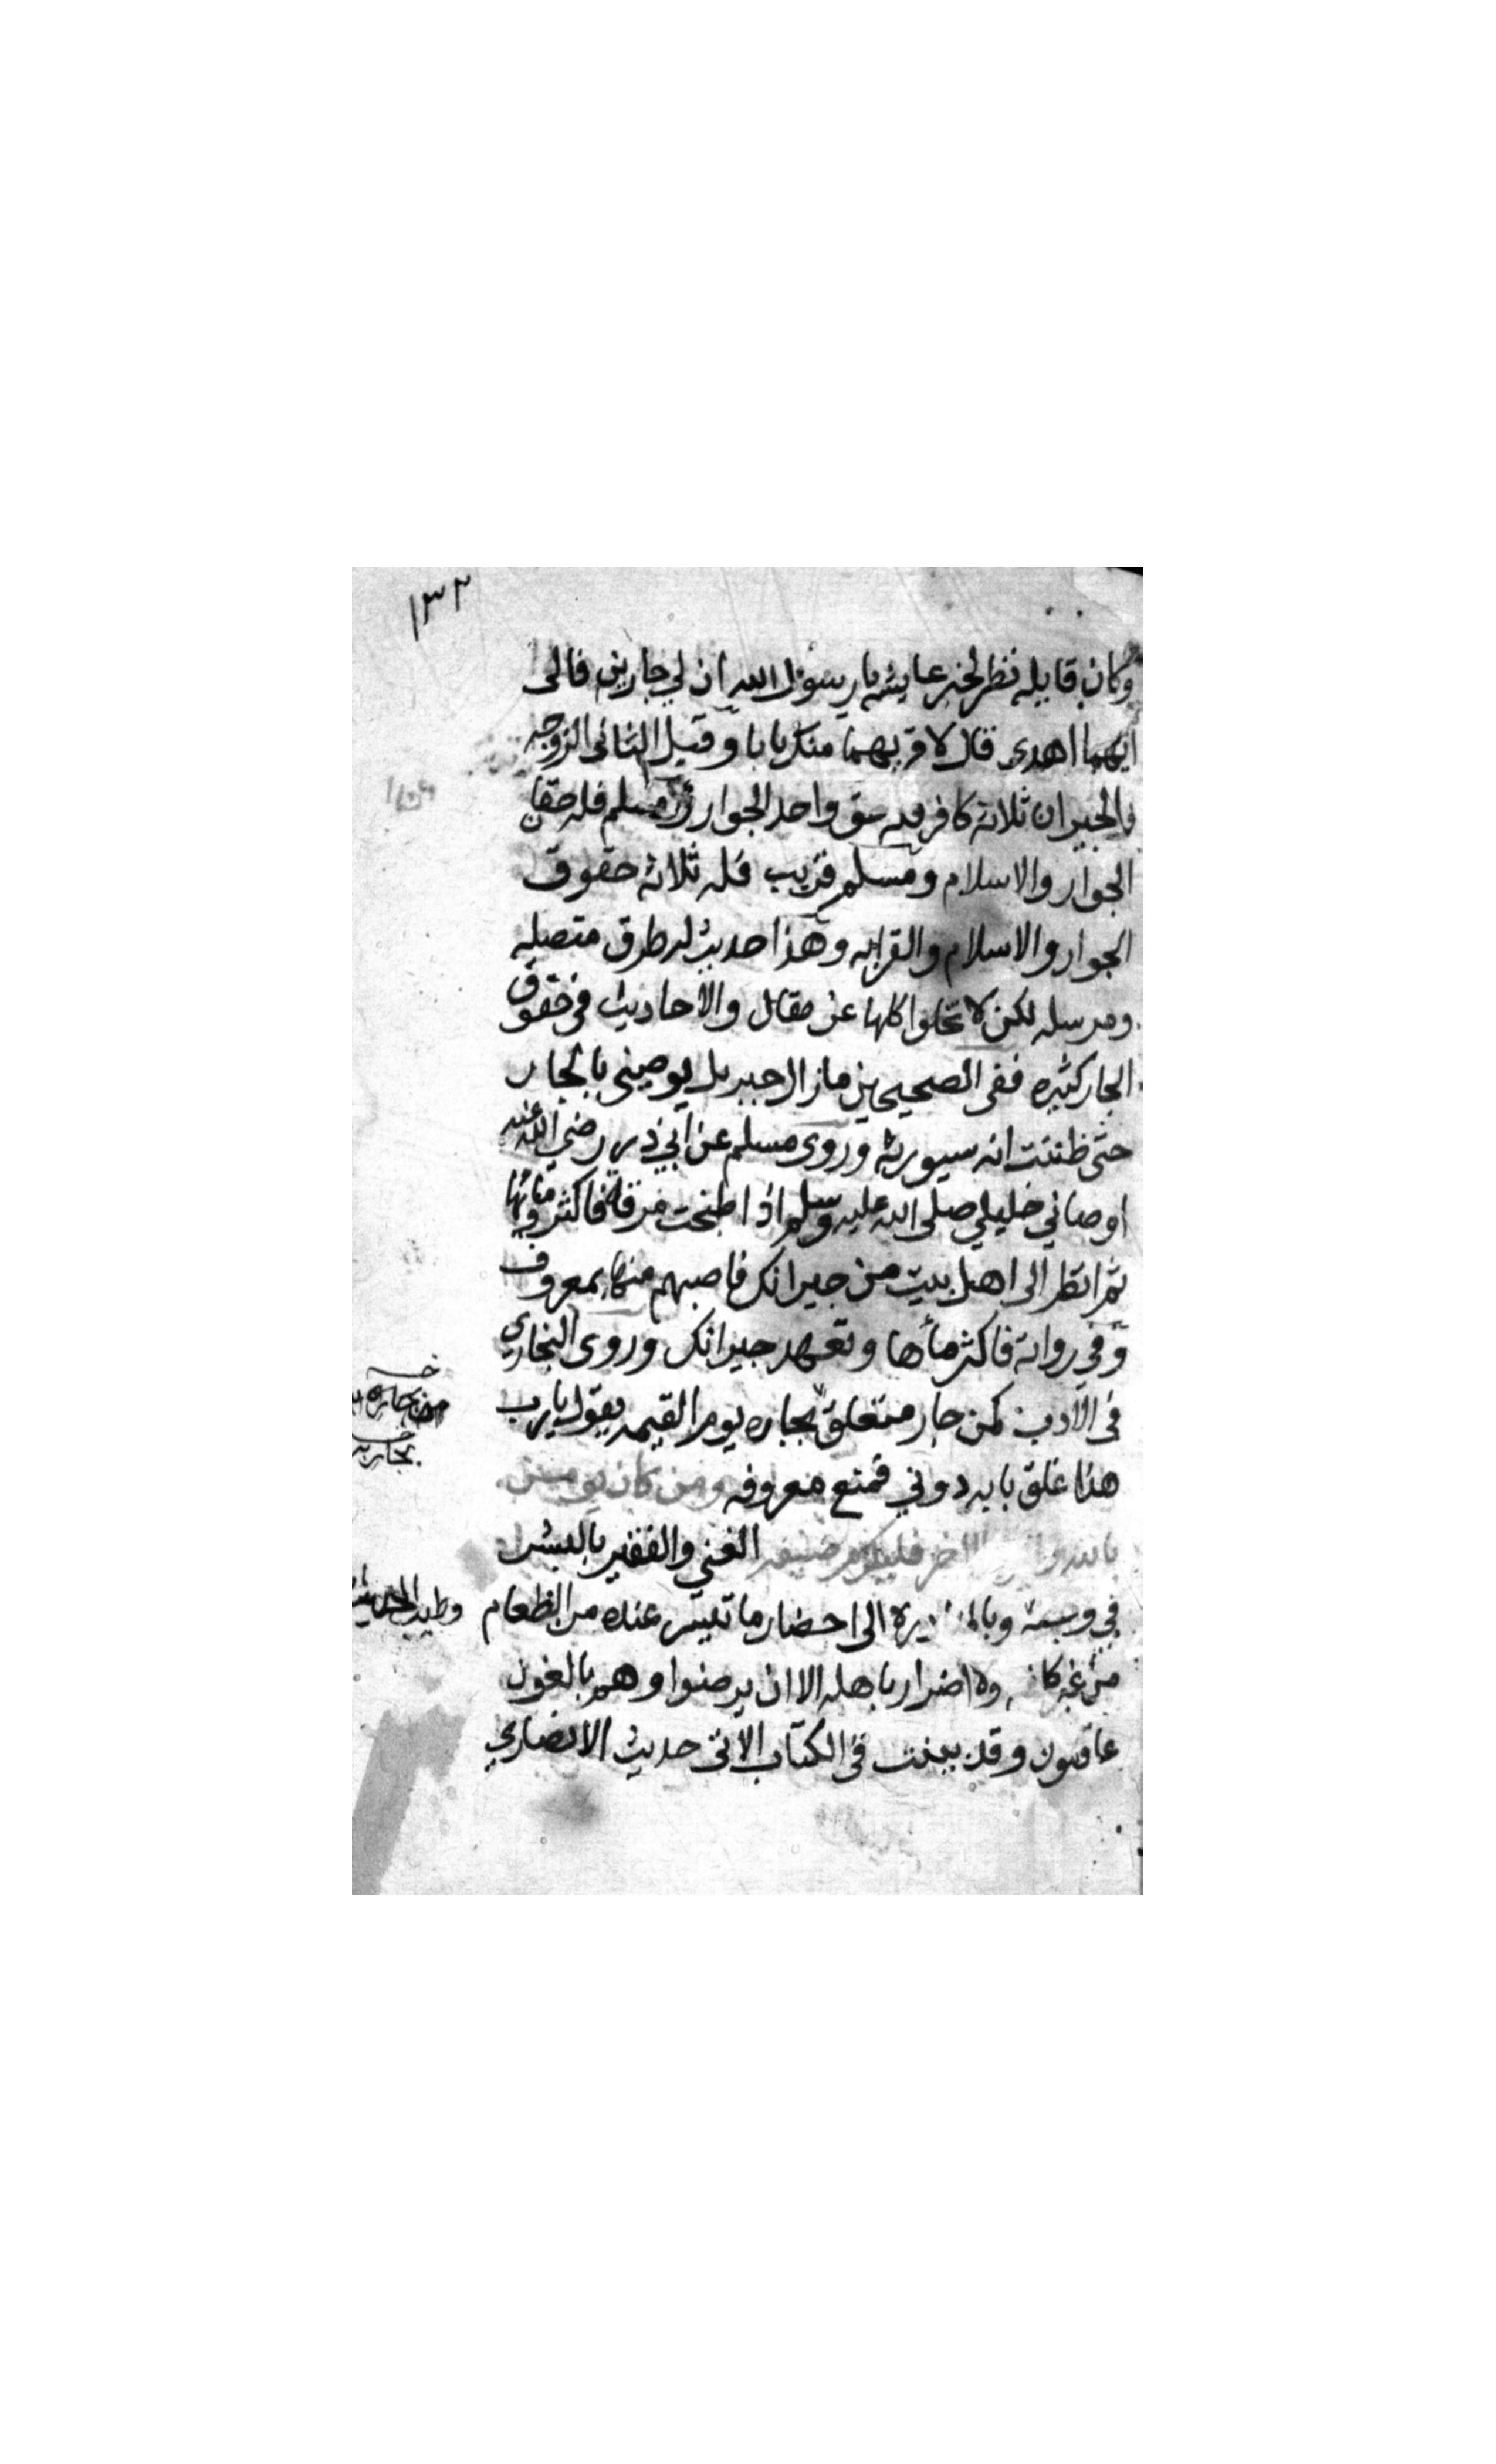 ١٣٢
وكان قايله نظر لخبر عايشه يا رسول الله ان لي جارين فالى
ايهما اهدى قال لاقربهما منك بابا وقيل الثاني الزوجه
والجيران ثلاثة كافر فله حق واحد الجوار ومسلم فله حقان
الجوار والاسلام ومسلم قريب فله ثلاثة حقوق
الجوار والاسلام والقرابه وهذا حديث له طرق متصله
ومرسله لكن لا تخلوا كلها عن مقال والاحاديث في حقوق
الجار كثيره ففى الصحيحين مازال جبريل يوصيني بالجار
حتى ظننت انه سيورثه وروى مسلم عن ابي ذر رضي الله عنه
اوصاني خليلي صلى الله عليه وسلم اذا طبخت مرقة فاكثر مائها
ثم انظر الى اهل بيت من جيرانك فاصبهم منها بمعروف
وفي رواية فاكثر مأها وتعهد جيرانك وروى البخاري
في الادب كمن جار متعلق بجاره يوم القيمه يقول يا رب
هذا غلق بابه دوني فمنع معروفه ومن كان يومن
بالله الاخر فليكرم ضيفه الغني والفقير بالبشر
في وجهه الى احضار ما تيسر عنده من الطعام
وطيب الحديث
من غير ولا اضرار باهله الا ان يرضوا وهم بالغون
عاقلون وقد بينت في الكتاب الاتي حديث الانصاري